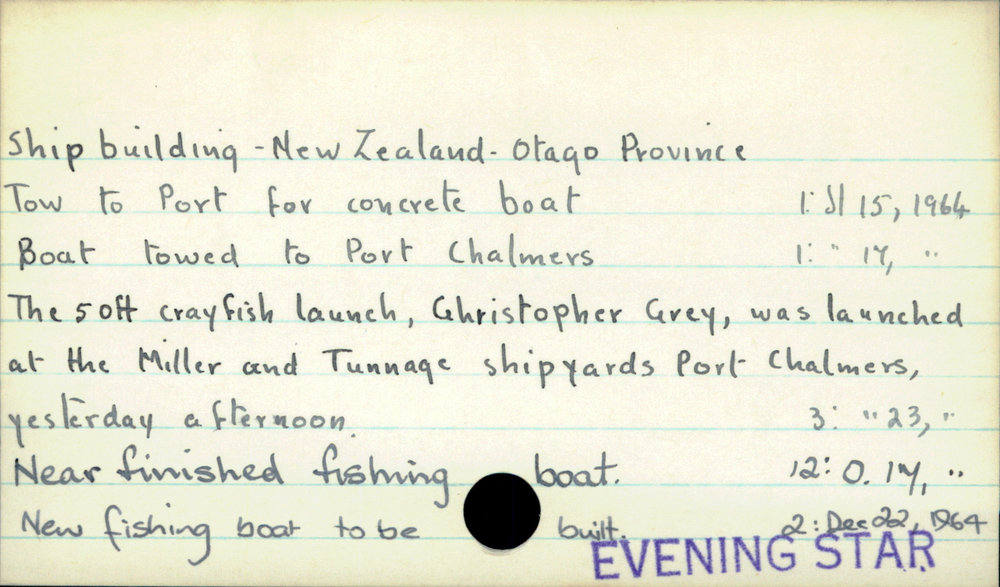 Ship building - New Zealand - Otago Province
Tow to Port for concrete boat 1: Jl 15, 1964
Boat towed to Port Chalmers 1: " 17, "
The 50ft crayfish launch, Christopher Grey, was launched
at the Miller and Tunnage shipyards Port Chalmers,
yesterday afternoon. 3: " 23, "
Near finished fishing boat. 12: O. 17, "
New fishing boat to be built. 2: Dec 22, 1964
EVENING STAR